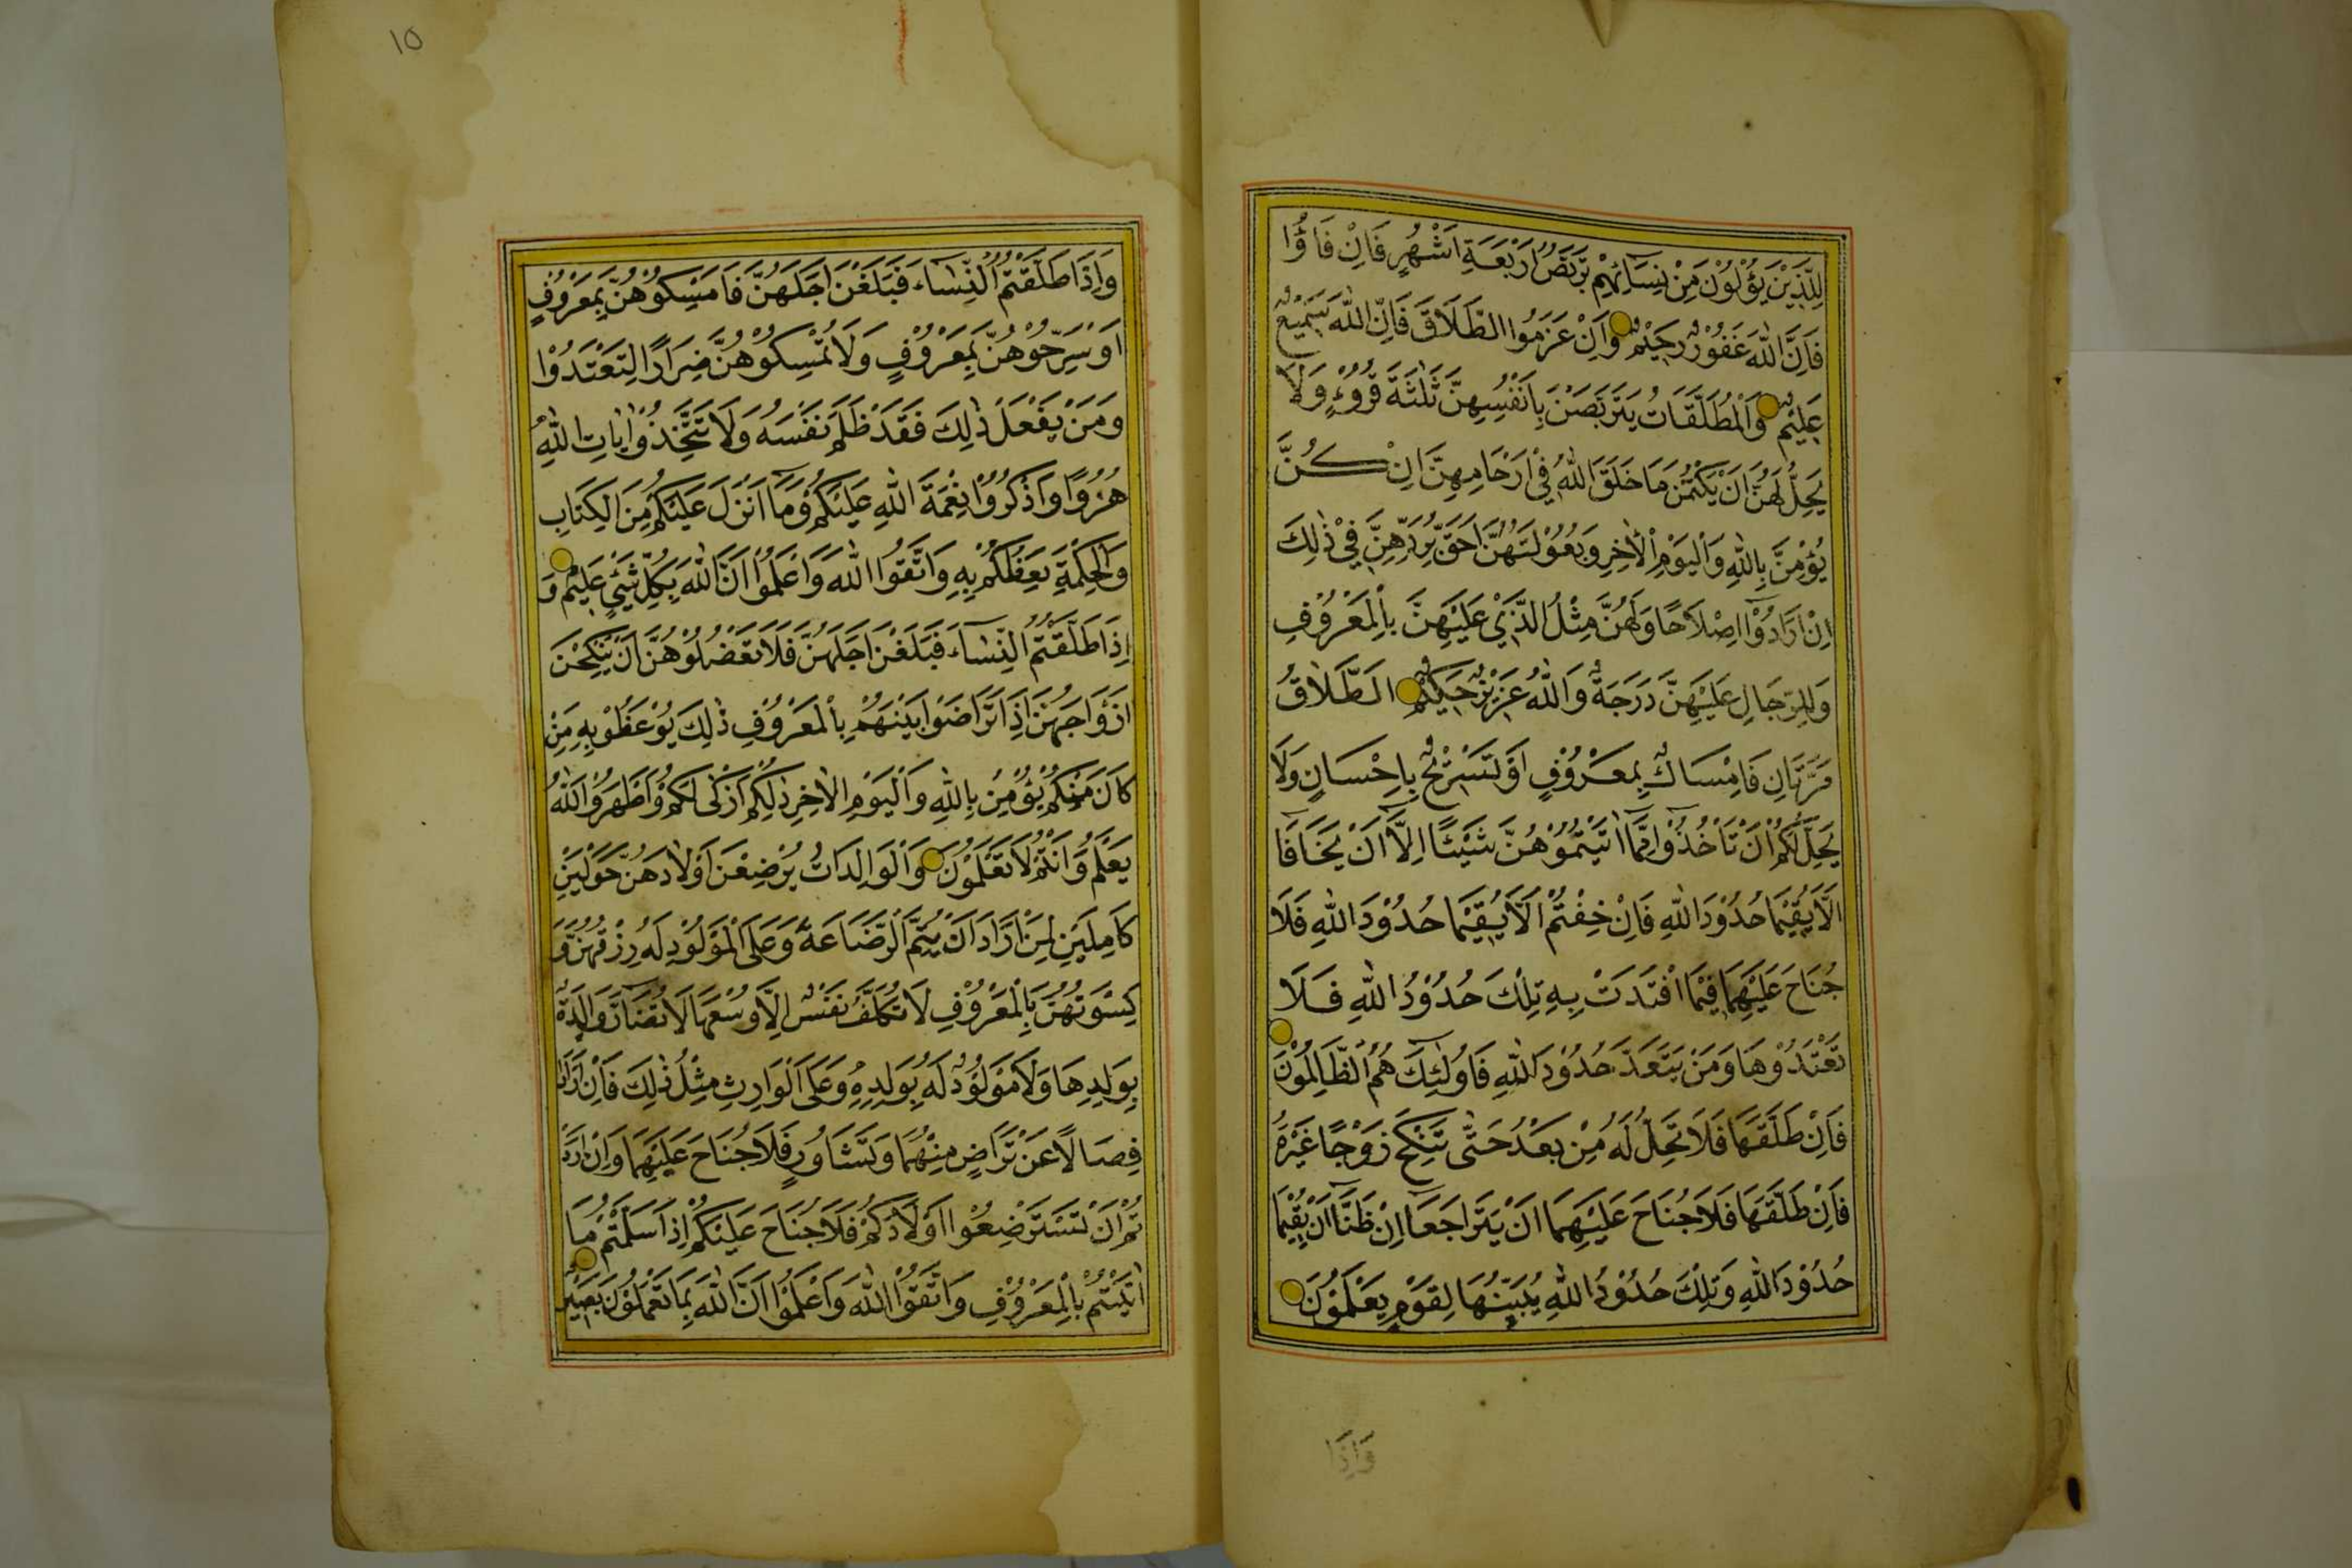 لِلَّذِيْنَ يُؤْلُوْنَ مِنْ نِسَآئِهِمْ تَرَبُّصُ اَرْبَعَةِ اَشْهُرٍ فَاِنْ فَاؤُا
فَاِنَّ اللّٰهَ غَفُوْرٌ رَحِيْمٌ وَاِنْ عَزَمُوا الطَّلَاقَ فَاِنَّ اللّٰهَ سَمِيْعٌ
عَلِيْمٌ وَالْمُطَلَّقَاتُ يَتَرَبَّصْنَ بِاَنْفُسِهِنَّ ثَلٰثَةَ قُرُوْءٍ وَلَا
يَحِلُّ لَهُنَّ اَنْ يَكْتُمْنَ مَا خَلَقَ اللّٰهُ فِيْ اَرْحَامِهِنَّ اِنْ كُنَّ
يُؤْمِنَّ بِاللّٰهِ وَالْيَوْمِ الْاٰخِرِ وَبُعُوْلَتُهُنَّ اَحَقُّ بِرَدِّهِنَّ فِيْ ذٰلِكَ
اِنْ اَرَادُوْا اِصْلَاحًا وَلَهُنَّ مِثْلُ الَّذِيْ عَلَيْهِنَّ بِالْمَعْرُوْفِ
وَلِلرِّجَالِ عَلَيْهِنَّ دَرَجَةٌ وَاللّٰهُ عَزِيْزٌ حَكِيْمٌ اَلطَّلَاقُ
مَرَّتَانِ فَاِمْسَاكٌ بِمَعْرُوْفٍ اَوْ تَسْرِيْحٌ بِاِحْسَانٍ وَلَا
يَحِلُّ لَكُمْ اَنْ تَاْخُذُوْا مِمَّا اٰتَيْتُمُوْهُنَّ شَيْئًا اِلَّا اَنْ يَخَافَا
اَلَّا يُقِيْمَا حُدُوْدَ اللّٰهِ فَاِنْ خِفْتُمْ اَلَّا يُقِيْمَا حُدُوْدَ اللّٰهِ فَلَا
جُنَاحَ عَلَيْهِمَا فِيْمَا افْتَدَتْ بِهِ تِلْكَ حُدُوْدُ اللّٰهِ فَلَا
تَعْتَدُوْهَا وَمَنْ يَتَعَدَّ حُدُوْدَ اللّٰهِ فَاُولٰئِكَ هُمُ الظَّالِمُوْنَ
فَاِنْ طَلَّقَهَا فَلَا تَحِلُّ لَهُ مِنْ بَعْدُ حَتّٰى تَنْكِحَ زَوْجًا غَيْرَهُ
فَاِنْ طَلَّقَهَا فَلَا جُنَاحَ عَلَيْهِمَا اَنْ يَتَرَاجَعَا اِنْ ظَنَّا اَنْ يُقِيْمَا
حُدُوْدَ اللّٰهِ وَتِلْكَ حُدُوْدُ اللّٰهِ يُبَيِّنُهَا لِقَوْمٍ يَعْلَمُوْنَ
وَاِذَا
١٥
وَاِذَا طَلَّقْتُمُ النِّسَاءَ فَبَلَغْنَ اَجَلَهُنَّ فَاَمْسِكُوْهُنَّ بِمَعْرُوْفٍ
اَوْ سَرِّحُوْهُنَّ بِمَعْرُوْفٍ وَلَا تُمْسِكُوْهُنَّ ضِرَارًا لِتَعْتَدُوْا
وَمَنْ يَفْعَلْ ذٰلِكَ فَقَدْ ظَلَمَ نَفْسَهُ وَلَا تَتَّخِذُوْا اٰيَاتِ اللّٰهِ
هُزُوًا وَاذْكُرُوْا نِعْمَةَ اللّٰهِ عَلَيْكُمْ وَمَا اَنْزَلَ عَلَيْكُمْ مِنَ الْكِتَابِ
وَالْحِكْمَةِ يَعِظُكُمْ بِهِ وَاتَّقُوا اللّٰهَ وَاعْلَمُوْا اَنَّ اللّٰهَ بِكُلِّ شَيْئٍ عَلِيْمٌ وَ
اِذَا طَلَّقْتُمُ النِّسَاءَ فَبَلَغْنَ اَجَلَهُنَّ فَلَا تَعْضُلُوْهُنَّ اَنْ يَنْكِحْنَ
اَزْوَاجَهُنَّ اِذَا تَرَاضَوْا بَيْنَهُمْ بِالْمَعْرُوْفِ ذٰلِكَ يُوْعَظُ بِهِ مَنْ
كَانَ مِنْكُمْ يُؤْمِنُ بِاللّٰهِ وَالْيَوْمِ الْاٰخِرِ ذٰلِكُمْ اَزْكٰى لَكُمْ وَاَطْهَرُ وَاللّٰهُ
يَعْلَمُ وَاَنْتُمْ لَا تَعْلَمُوْنَ وَالْوَالِدَاتُ يُرْضِعْنَ اَوْلَادَهُنَّ حَوْلَيْنِ
كَامِلَيْنِ لِمَنْ اَرَادَ اَنْ يُتِمَّ الرَّضَاعَةَ وَعَلَى الْمَوْلُوْدِ لَهُ رِزْقُهُنَّ وَ
كِسْوَتُهُنَّ بِالْمَعْرُوْفِ لَا تُكَلَّفُ نَفْسٌ اِلَّا وُسْعَهَا لَا تُضَارَّ وَالِدَةٌ
بِوَلَدِهَا وَلَا مَوْلُوْدٌ لَهُ بِوَلَدِهِ وَعَلَى الْوَارِثِ مِثْلُ ذٰلِكَ فَاِنْ اَرَادَا
فِصَالًا عَنْ تَرَاضٍ مِنْهُمَا وَتَشَاوُرٍ فَلَا جُنَاحَ عَلَيْهِمَا وَاِنْ اَرَدْ
تُمْ اَنْ تَسْتَرْضِعُوْا اَوْلَادَكُمْ فَلَا جُنَاحَ عَلَيْكُمْ اِذَا سَلَّمْتُمْ مَا
اٰتَيْتُمْ بِالْمَعْرُوْفِ وَاتَّقُوْا اللّٰهَ وَاعْلَمُوْا اَنَّ اللّٰهَ بِمَا تَعْمَلُوْنَ بَصِيْرٌ